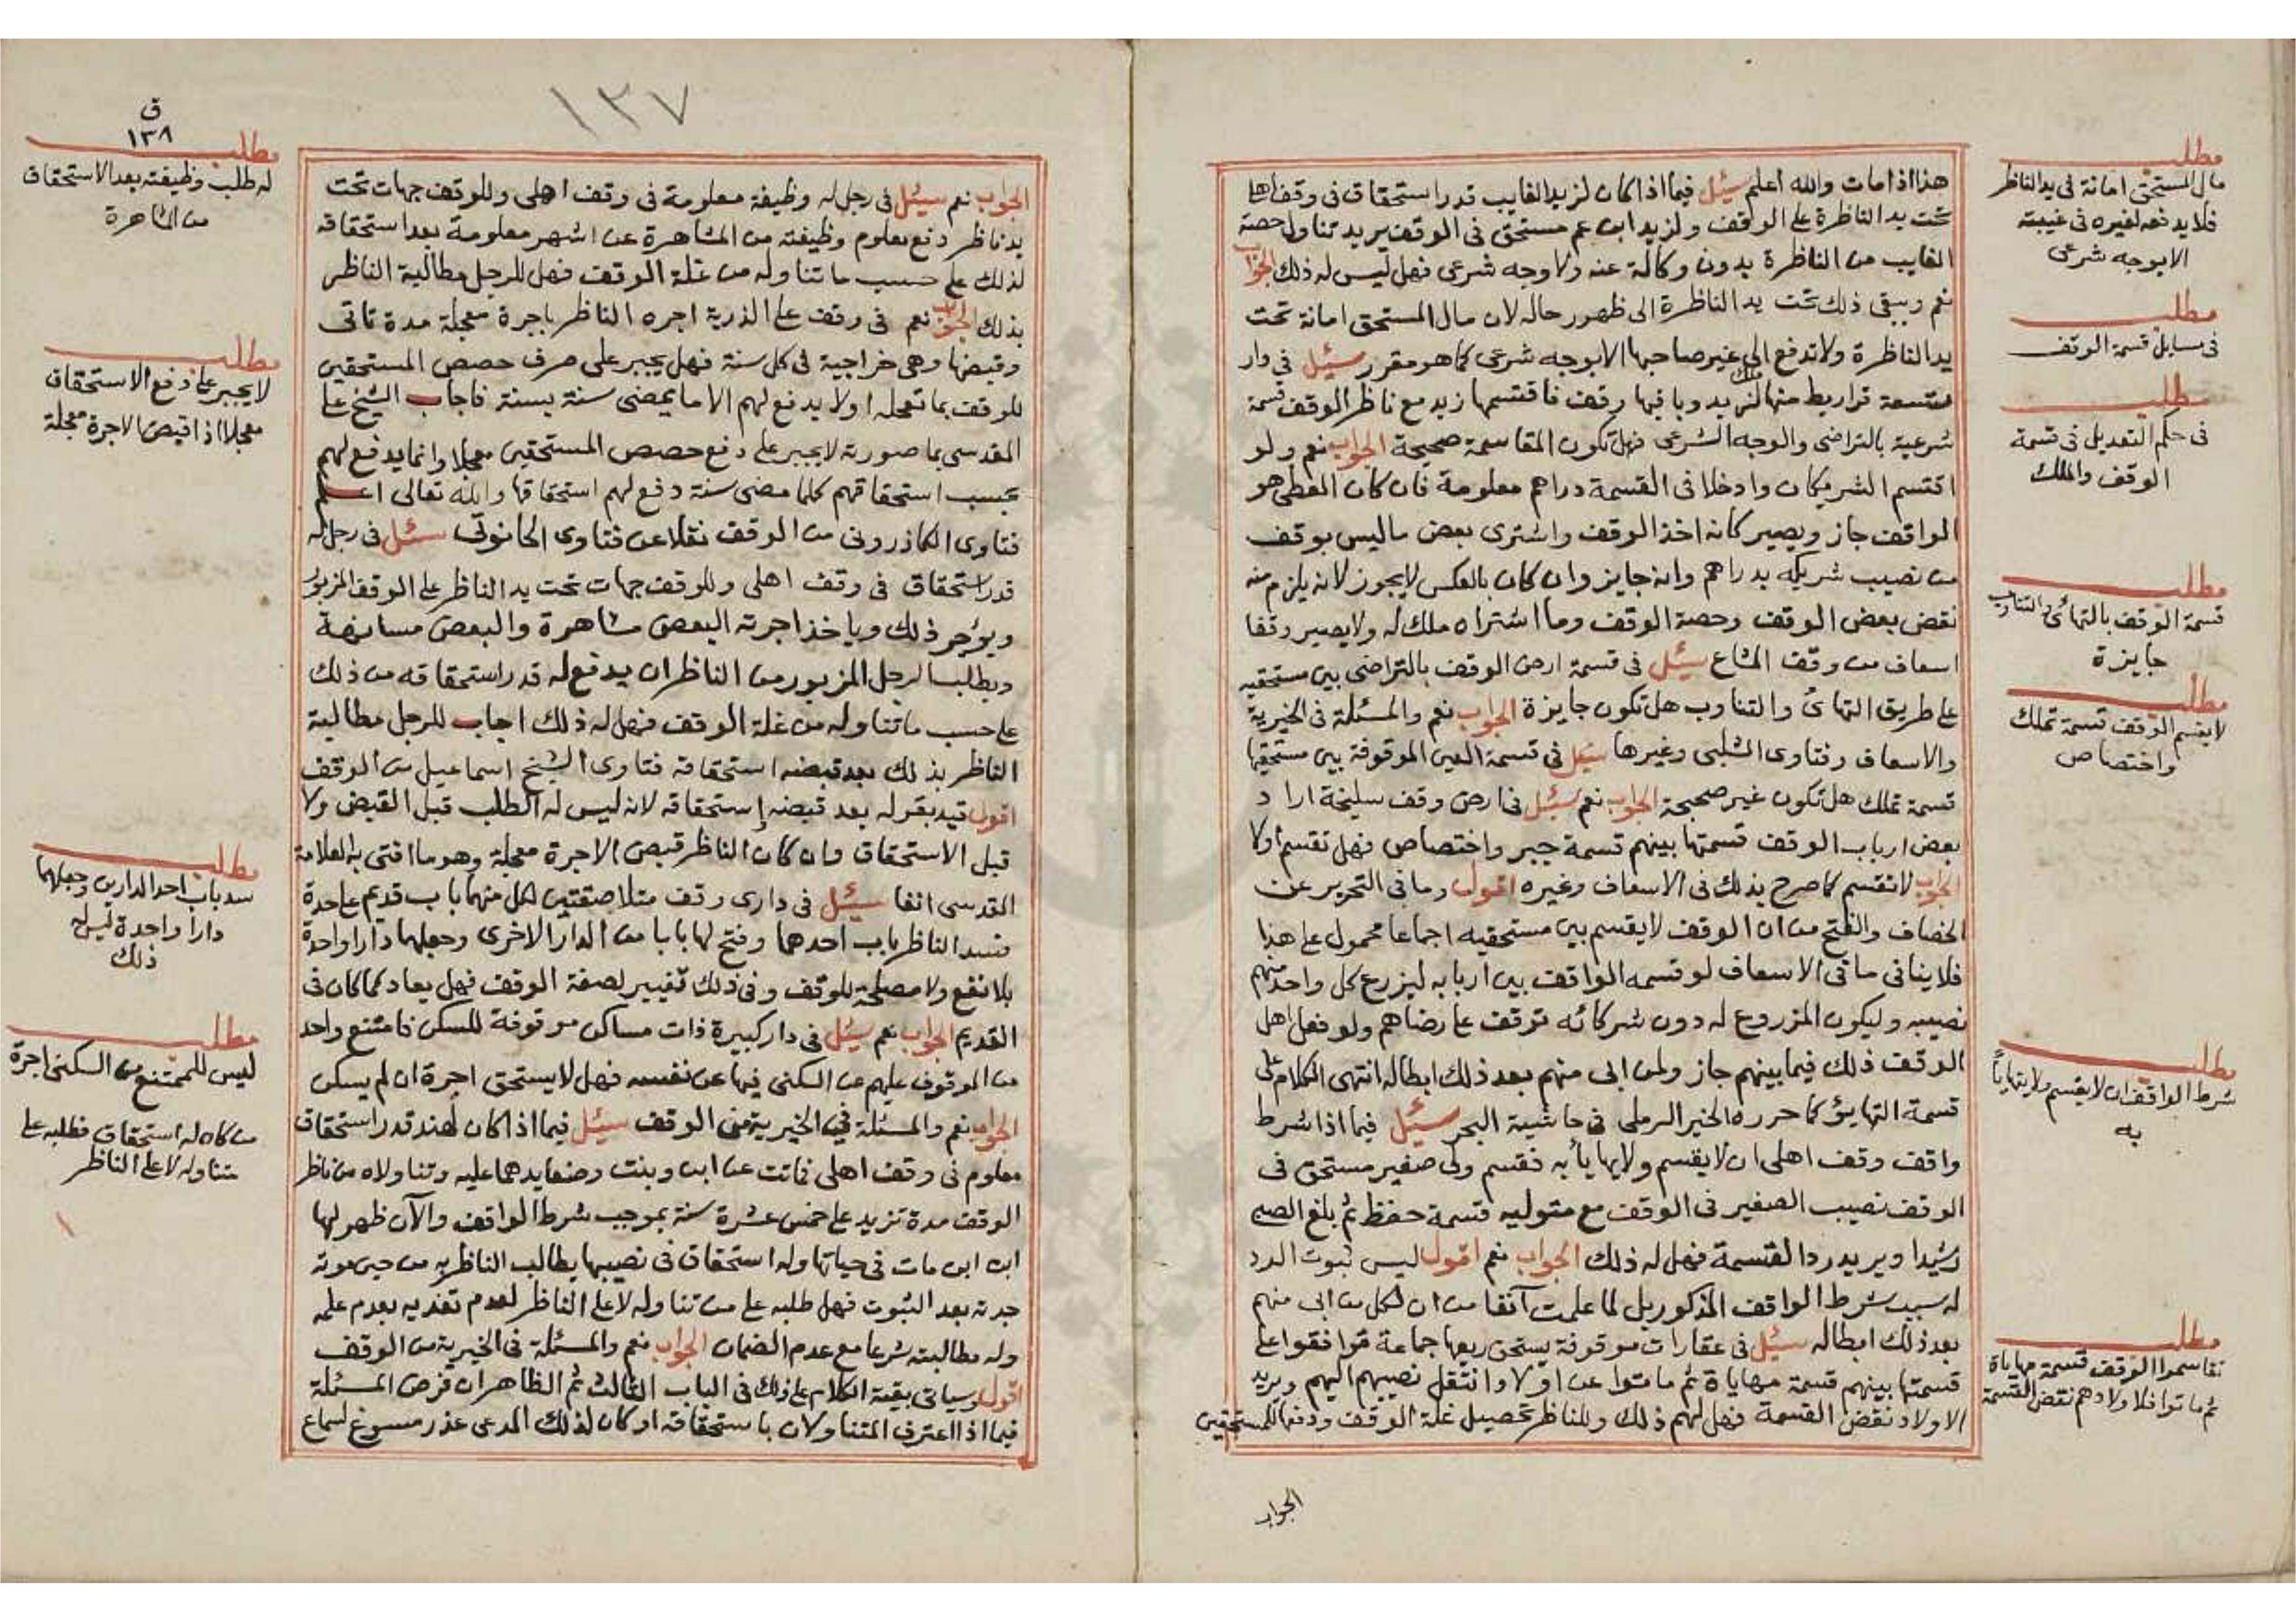 هذا اذا مات والله اعلم سئل فيما اذا كان لزيد الغايب قدر استحقاق في وقف اهلي
تحت يد الناظرة على الوقف ولزيد ابن عم مستحق في الوقف يريد تناول حصة
الغايب من الناظرة بدون وكالة عنه ولا وجه شرعي فهل ليس له ذلك الجواب
نعم ويبقى ذلك تحت يد الناظرة الى ظهور حاله لان مال المستحق امانة تحت
يد الناظرة ولا تدفع الى غير صاحبها الابوجه شرعي كما هو مقرر سئل في دار
تسعة قراريط منها ملك لزيد وباقيها وقف فاقتسمها زيد مع ناظر الوقف قسمة
شرعية بالتراضي والوجه الشرعي فهل تكون المقاسمة صحيحة الجواب نعم ولو
اقتسم الشريكان وادخلا في القسمة دراهم معلومة فان كان المعطي هو
الواقف جاز ويصير كانه اخذ الوقف واشترى بعض ما ليس بوقف
من نصيب شريكه بدراهم وانه جايز وان كان بالعكس لا يجوز لانه يلزم منه
نقض بعض الوقف وحصة الوقف وما اشتراه ملك له ولا يصير وقفا
اسعاف من وقف المشاع سئل في قسمة ارض الوقف بالتراضي بين مستحقيه
على طريق التهائ والتناوب هل تكون جايزة الجواب نعم والمسئلة في الخيرية
والاسعاف وفتاوى الشلبي وغيرها سئل في قسمة العين الموقوفة بين مستحقيها
قسمة تملك هل تكون غير صحيحة الجواب نعم سئل في ارض وقف سليخة اراد
بعض ارباب الوقف قسمتها بينهم قسمة جبر واختصاص فهل تقسم اولا
الجواب لا تقسم كما صرح بذلك في الاسعاف وغيره اقول وما في التحرير عن
الخصاف والفتح من ان الوقف لا يقسم بين مستحقيه اجماعا محمول على هذا
فلا ينافي ما في الاسعاف لو قسمه الواقف بين اربابه ليزرع كل واحد منهم
نصيبه وليكون المزروع له دون شركائه توقف على رضاهم ولو فعل اهل
الوقف ذلك فيما بينهم جاز ولمن ابى منهم بعد ذلك ابطاله انتهى الكلام على
قسمة التهايؤ كما حرره الخير الرملي في حاشية البحر سئل فيما اذا شرط
واقف وقف اهلي ان لا يقسم ولا يهايأ به فقسم ولي صغير مستحق في
الوقف نصيب الصغير في الوقف مع متوليه قسمة حفظ ثم بلغ الصبي
رشيدا ويريد رد القسمة فهل له ذلك الجواب نعم اقول ليس ثبوت الرد
له بسبب شرط الواقف المذكور بل لما علمت آنفا من ان لكل من ابى منهم
بعد ذلك ابطاله سئل في عقارات موقوفة يستحق ريعها جماعة توافقوا على
قسمتها بينهم قسمة مهاياة ثم ماتوا عن اولاد وانتقل نصيبهم اليهم ويريد
الاولاد نقض القسمة فهل لهم ذلك وللناظر تحصيل غلة الوقف ودفعها للمستحقين
الجواب
مطلب
مال المستحق امانة في يد الناظر
فلا يدفعه لغيره في غيبته
الابوجه شرعي
مطلب
في مسايل قسمة الوقف
مطلب
في حكم التعديل في قسمة
الوقف والملك
مطلب
قسمة الوقف بالتهائ والتناوب
جايزة
مطلب
لا يقسم الوقف قسمة تملك
واختصاص
مطلب
شرط الواقف ان لا يقسم ولا يتهايأ
به
مطلب
تقاسموا الوقف قسمة مهاياة
ثم ماتوا فلاولادهم نقض القسمة
١٣٧
الجواب نعم سئل في رجل له وظيفة معلومة في وقف اهلي وللوقف جهات تحت
يد ناظر دفع معلوم وظيفته من المشاهرة عن اشهر معلومة بعد استحقاقه
لذلك على حسب ما تناوله من غلة الوقف فهل للرجل مطالبة الناظر
بذلك الجواب نعم في وقف على الذرية اجره الناظر باجرة معجلة مدة تاتي
وقبضها وهي خراجية في كل سنة فهل يجبر على صرف حصص المستحقين
للوقف بما تعجله اولا يدفع لهم الا ما يمضى سنة بسنة فاجاب الشيخ على
المقدسي بما صورته لا يجبر على دفع حصص المستحقين معجلا وانما يدفع لهم
بحسب استحقاقهم كلما مضى سنة دفع لهم استحقاقها والله تعالى اعلم
فتاوى الكازروني من الوقف نقلا عن فتاوى الحانوتي سئل في رجل له
قدر استحقاق في وقف اهلي وللوقف جهات تحت يد الناظر على الوقف المزبور
ويؤجر ذلك وياخذ اجرته البعض مشاهرة والبعض مسانهة
ويطلب الرجل المزبور من الناظر ان يدفع له قدر استحقاقه من ذلك
على حسب ما تناوله من غلة الوقف فهل له ذلك اجاب للرجل مطالبة
الناظر بذلك بعد قبضه استحقاقه فتاوى الشيخ اسماعيل من الوقف
اقول قيد بقوله بعد قبضه استحقاقه لانه ليس له الطلب قبل القبض ولا
قبل الاستحقاق وان كان الناظر قبض الاجرة معجلة وهو ما افتى به العلامة
المقدسي انفا سئل في داري وقف متلاصقتين لكل منهما باب قديم على حدة
فسد الناظر باب احدهما وفتح لها بابا من الدار الاخرى وجعلهما دارا واحدة
بلا نفع ولا مصلحة للوقف وفي ذلك تغيير لصفة الوقف فهل يعاد كما كان في
القديم الجواب نعم سئل في دار كبيرة ذات مساكن موقوفة للسكن فامتنع واحد
من الموقوف عليهم من السكنى فيها عن نفسه فهل لا يستحق اجرة ان لم يسكن
الجواب نعم والمسئلة في الخيرية من الوقف سئل فيما اذا كان لهند قدر استحقاق
معلوم في وقف اهلي فماتت عن ابن وبنت وضعا يدهما عليه وتناولاه من ناظر
الوقف مدة تزيد على خمس عشرة سنة بموجب شرط الواقف والآن ظهر لها
ابن ابن مات في حياتها وله استحقاق في نصيبها يطالب الناظر به من حين موته
جدته بعد الثبوت فهل طلبه على من تناوله لا على الناظر لعدم تعديه بعدم علمه
وله مطالبته شرعا مع عدم الضمان الجواب نعم والمسئلة في الخيرية من الوقف
اقول وسياتي بقية الكلام على ذلك في الباب الثالث ثم الظاهر ان فرض المسئلة
فيما اذا اعترف المتناولان باستحقاقه او كان لذلك المدعي عذر مسوغ لسماع
ق
١٣٨
مطلب
له طلب وظيفته بعد الاستحقاق
من المشاهرة
مطلب
لا يجبر على دفع الاستحقاق
معجلا اذا قبض الاجرة معجلة
مطلب
سد باب احد الدارين وجعلهما
دارا واحدة ليس له
ذلك
مطلب
ليس للممتنع من السكنى اجرة
من كان له استحقاق فطلبه على
متناوله لا على الناظر
١